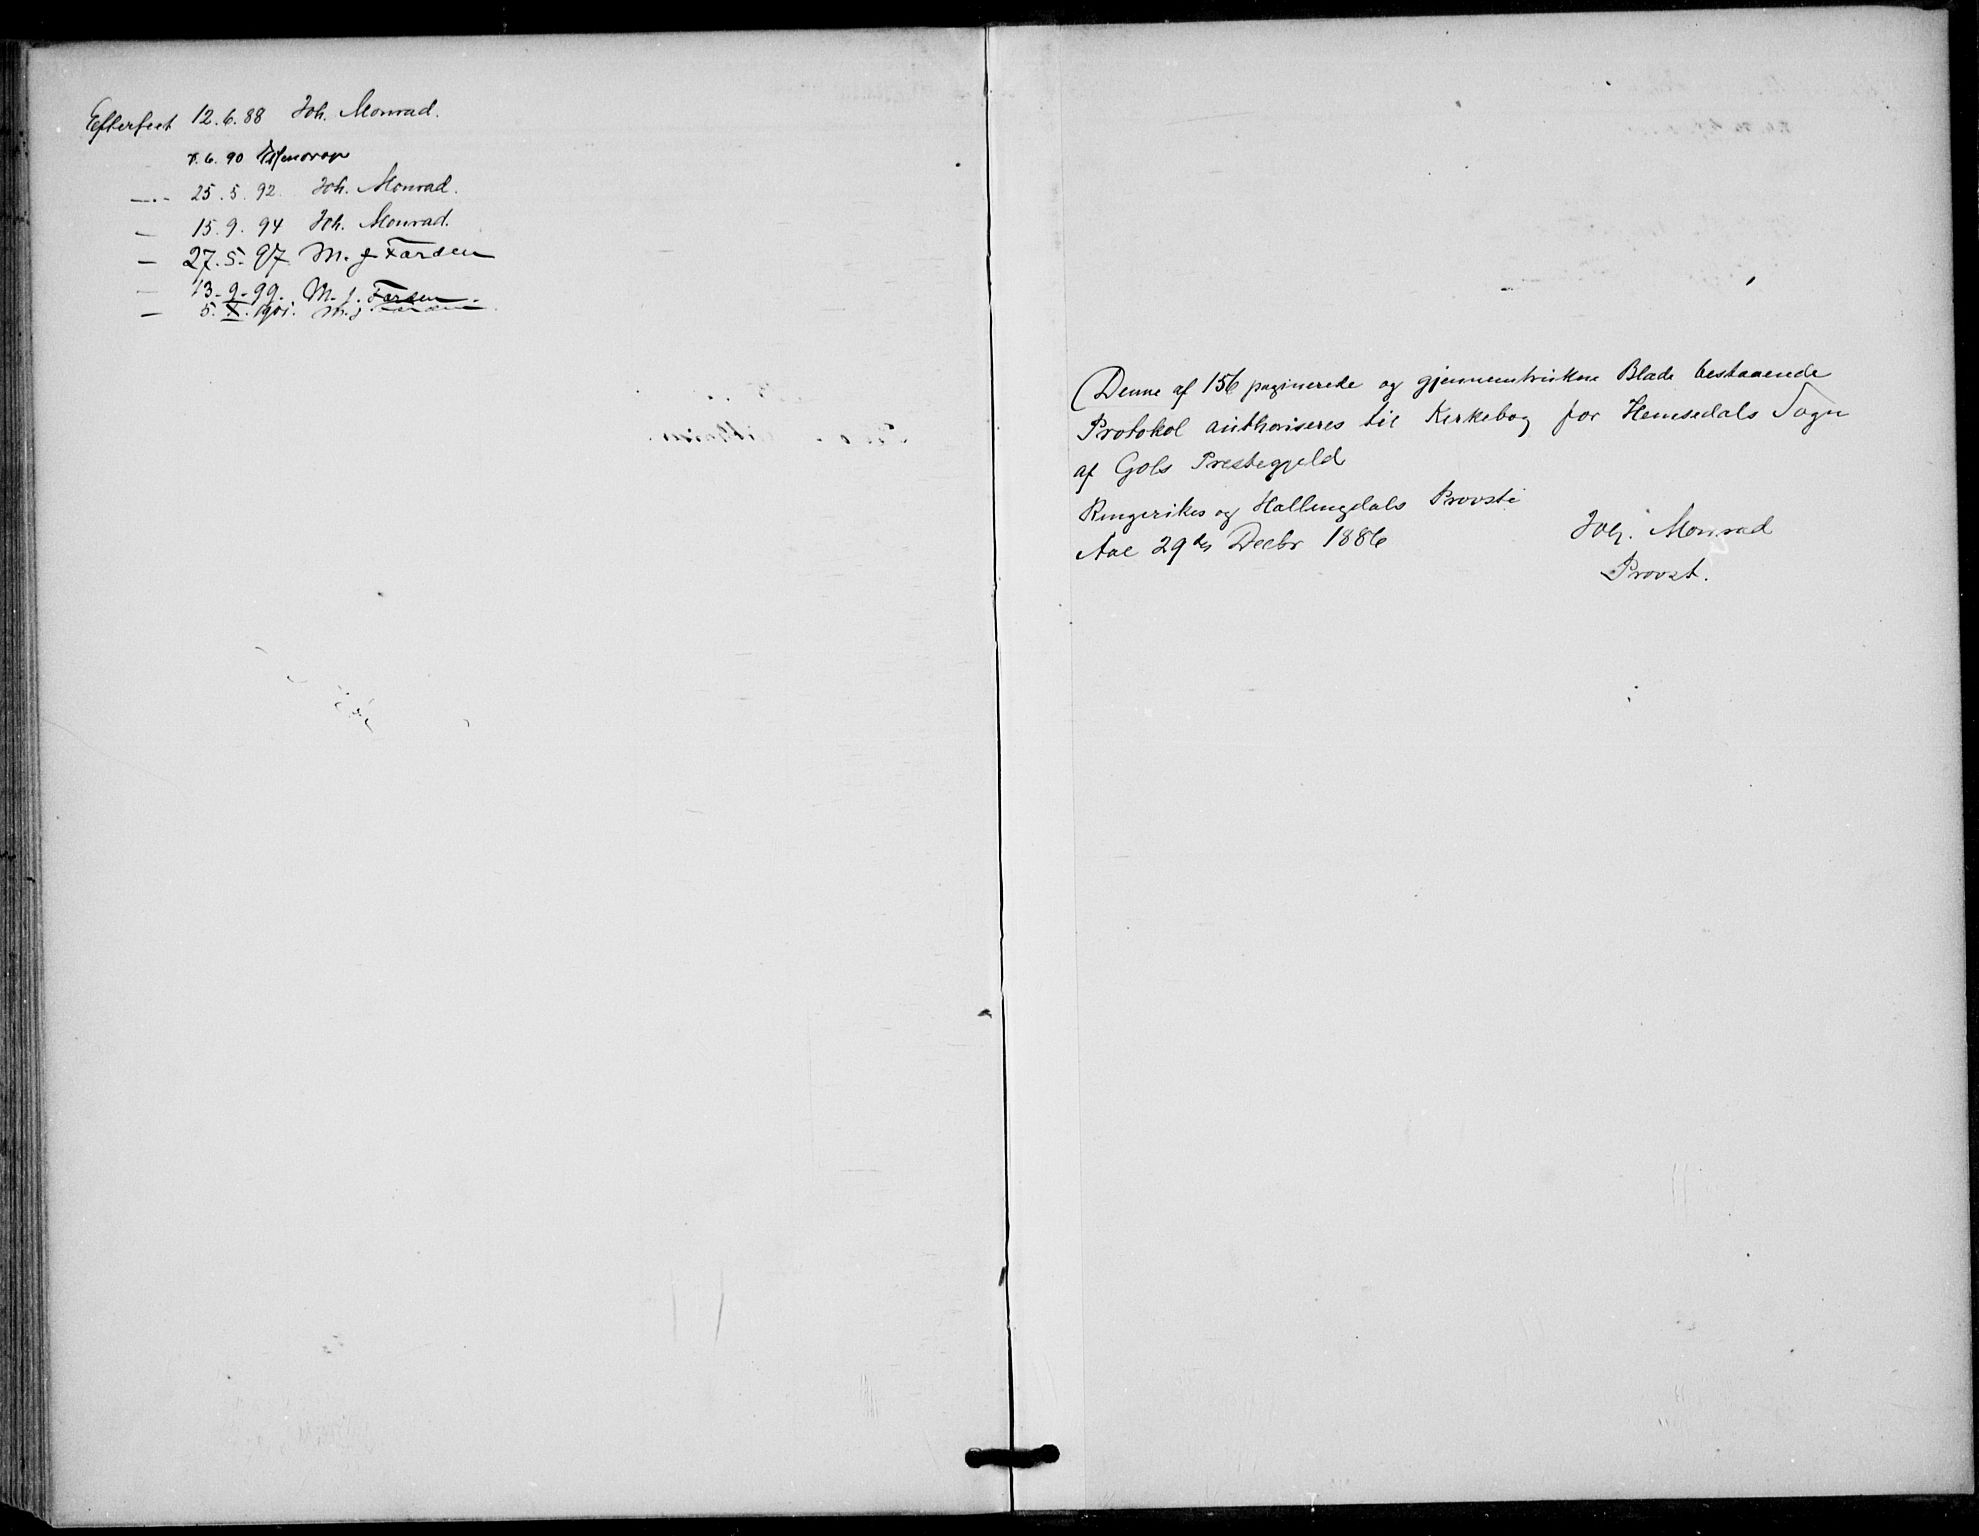 Efterseet 12.6.88 Joh. Monrad.
7.6.90
—„— 25.5.92. Joh. Monrad.
— 15.9.94 Joh. Monrad.
— 27.5.97. M. J. Færden
— 13-9-99. M. J. Færden.
— 5.X.1901. M. J. Færden.
Denne af 156 paginerede og gjennemtrukne Blade bestaaende
Protokol authoriseres til Kirkebog for Hemsedals Sogn
af Gols Prestegjeld
Ringerikes og Hallingdals Provsti
Aal 29de Decbr 1886
Joh. Monrad
Provst.